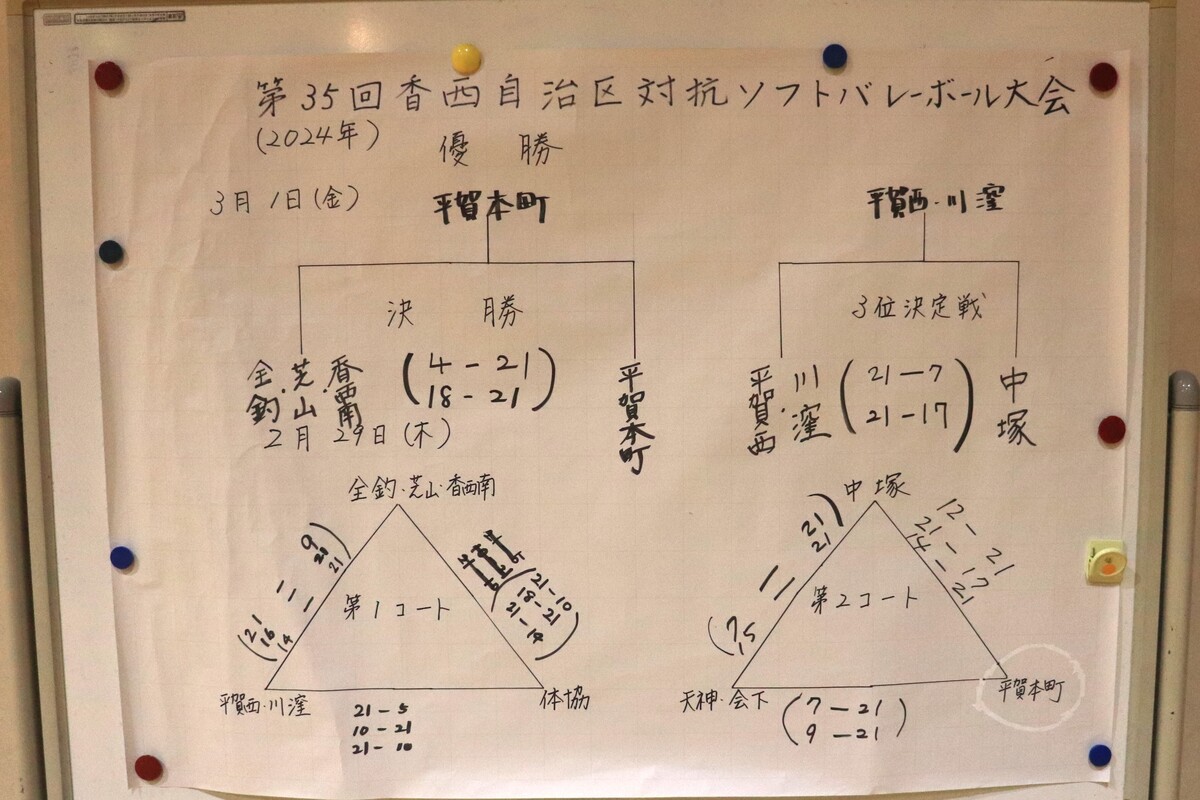 第35回香西自治区対抗ソフトバレーボール大会
(2024年)
優勝
3月1日(金)
平賀本町
平賀西・川窪
決勝
3位決定戦
全釣・芝山・香西南
(4-21
18-21)
平賀本町
平賀西・川窪
(21-7
21-17)
中塚
2月29日(木)
全釣・芝山・香西南
中塚
9
20
21
21
16
14
第1コート
21-10
18-21
21-14
21
21
7
15
第2コート
12-21
21-17
14-21
平賀西・川窪
体協
天神・会下
平賀本町
21-5
10-21
21-10
(7-21
9-21)